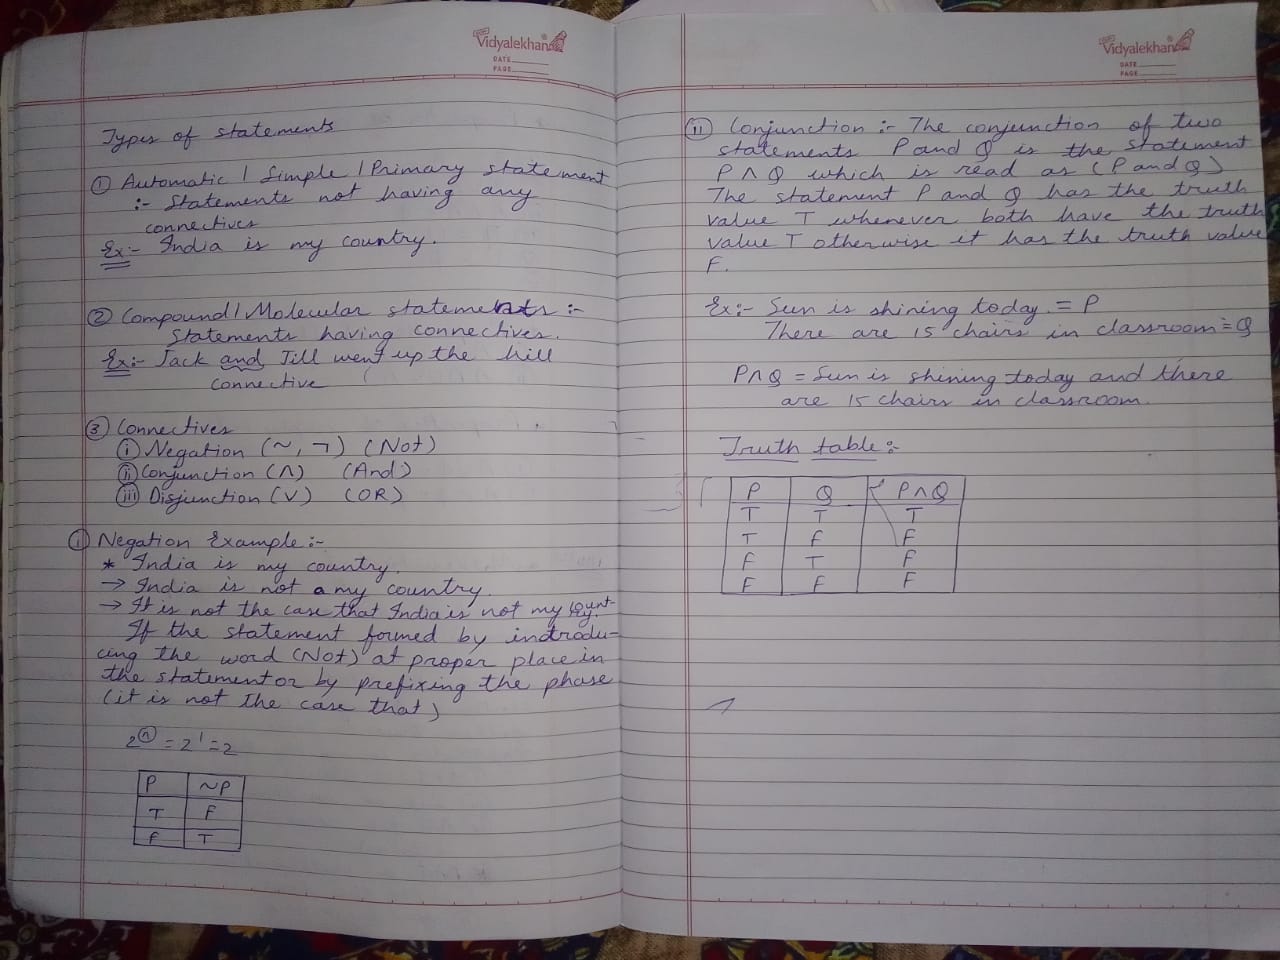 Vidyalekhan
DATE
PAGE
Types of statements
① Automatic / Simple / Primary statement
:- Statements not having any
connectives
Ex:- India is my country.
② Compound / Molecular statements :-
Statements having connectives.
Ex:- Jack and Jill went up the hill
connective
③ Connectives
(i) Negation (~, ¬) (Not)
(ii) Conjunction (∧) (And)
(iii) Disjunction (∨) (OR)
(i) Negation Example :-
* India is my country.
→ India is not a my country.
→ It is not the case that India is not my count-
ry.
If the statement formed by indtrodu-
cing the word (Not) at proper place in
the statement or by prefixing the phase
(it is not the case that)
2ⁿ = 2¹ = 2
P ~P
T F
F T
Vidyalekhan
DATE
PAGE
(ii) Conjunction :- The conjunction of two
statements P and Q is the statement
P ∧ Q which is read as (P and Q)
The statement P and Q has the truth
value T whenever both have the truth
value T otherwise it has the truth value
F.
Ex:- Sun is shining today. = P
There are 15 chairs in classroom = Q
P∧Q = Sun is shining today and there
are 15 chairs in classroom.
Truth table :-
P Q P∧Q
T T T
T F F
F T F
F F F